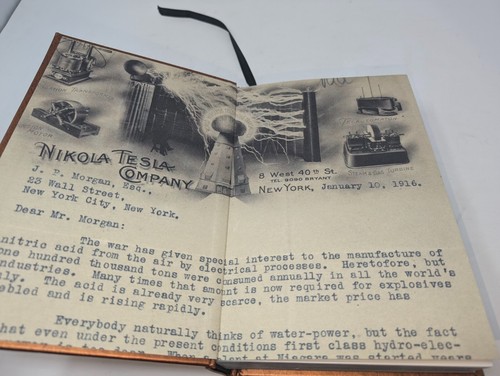 NIKOLA TESLA
COMPANY
8 West 40th St.
TEL. 8090 BRYANT
NEW YORK, January 10, 1916.
J. P. Morgan, Esq.,
23 Wall Street,
New York City, New York.
Dear Mr. Morgan:
The war has given special interest to the manufacture of
nitric acid from the air by electrical processes. Heretofore, but
one hundred thousand tons were consumed annually in all the world's
industries. Many times that amount is now required for explosives
ly. The acid is already very scarce, the market price has
ebled and is rising rapidly.
Everybody naturally thinks of water-power, but the fact
hat even under the present conditions first class hydro-elec-
at Niagara was started years